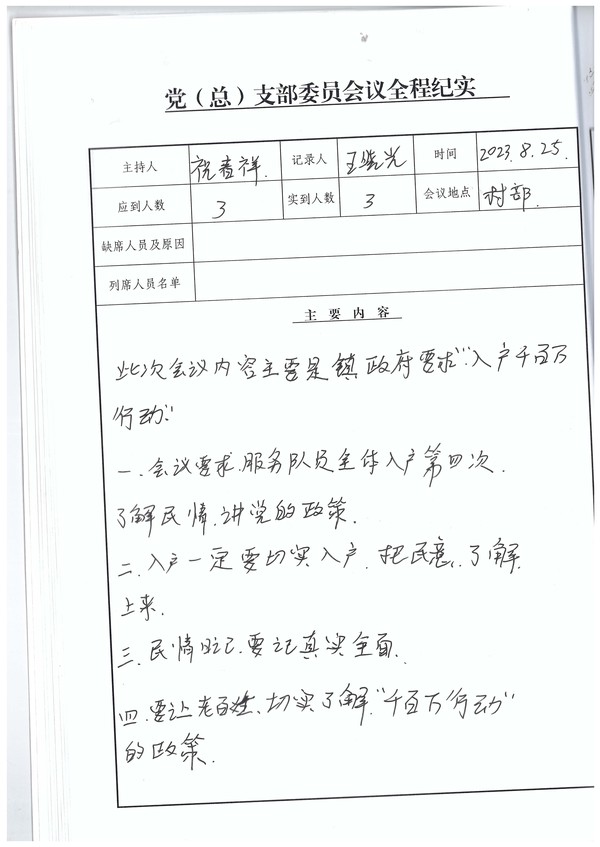 党（总）支部委员会议全程纪实
主持人 祝春祥. 记录人 王 光 时间 2023.8.25.
应到人数 3 实到人数 3 会议地点 村部.
缺席人员及原因
列席人员名单
主要内容
此次会议内容主要是镇政府要求“入户千百万
行动”:
一.会议要求.服务队员全体入户第四次.
了解民情.讲党的政策.
二.入户一定要切实入户.把民意.了解
上来.
三.民情日记.要记真实全面.
四.要让老百姓.切实了解.“千百万行动”
的政策.